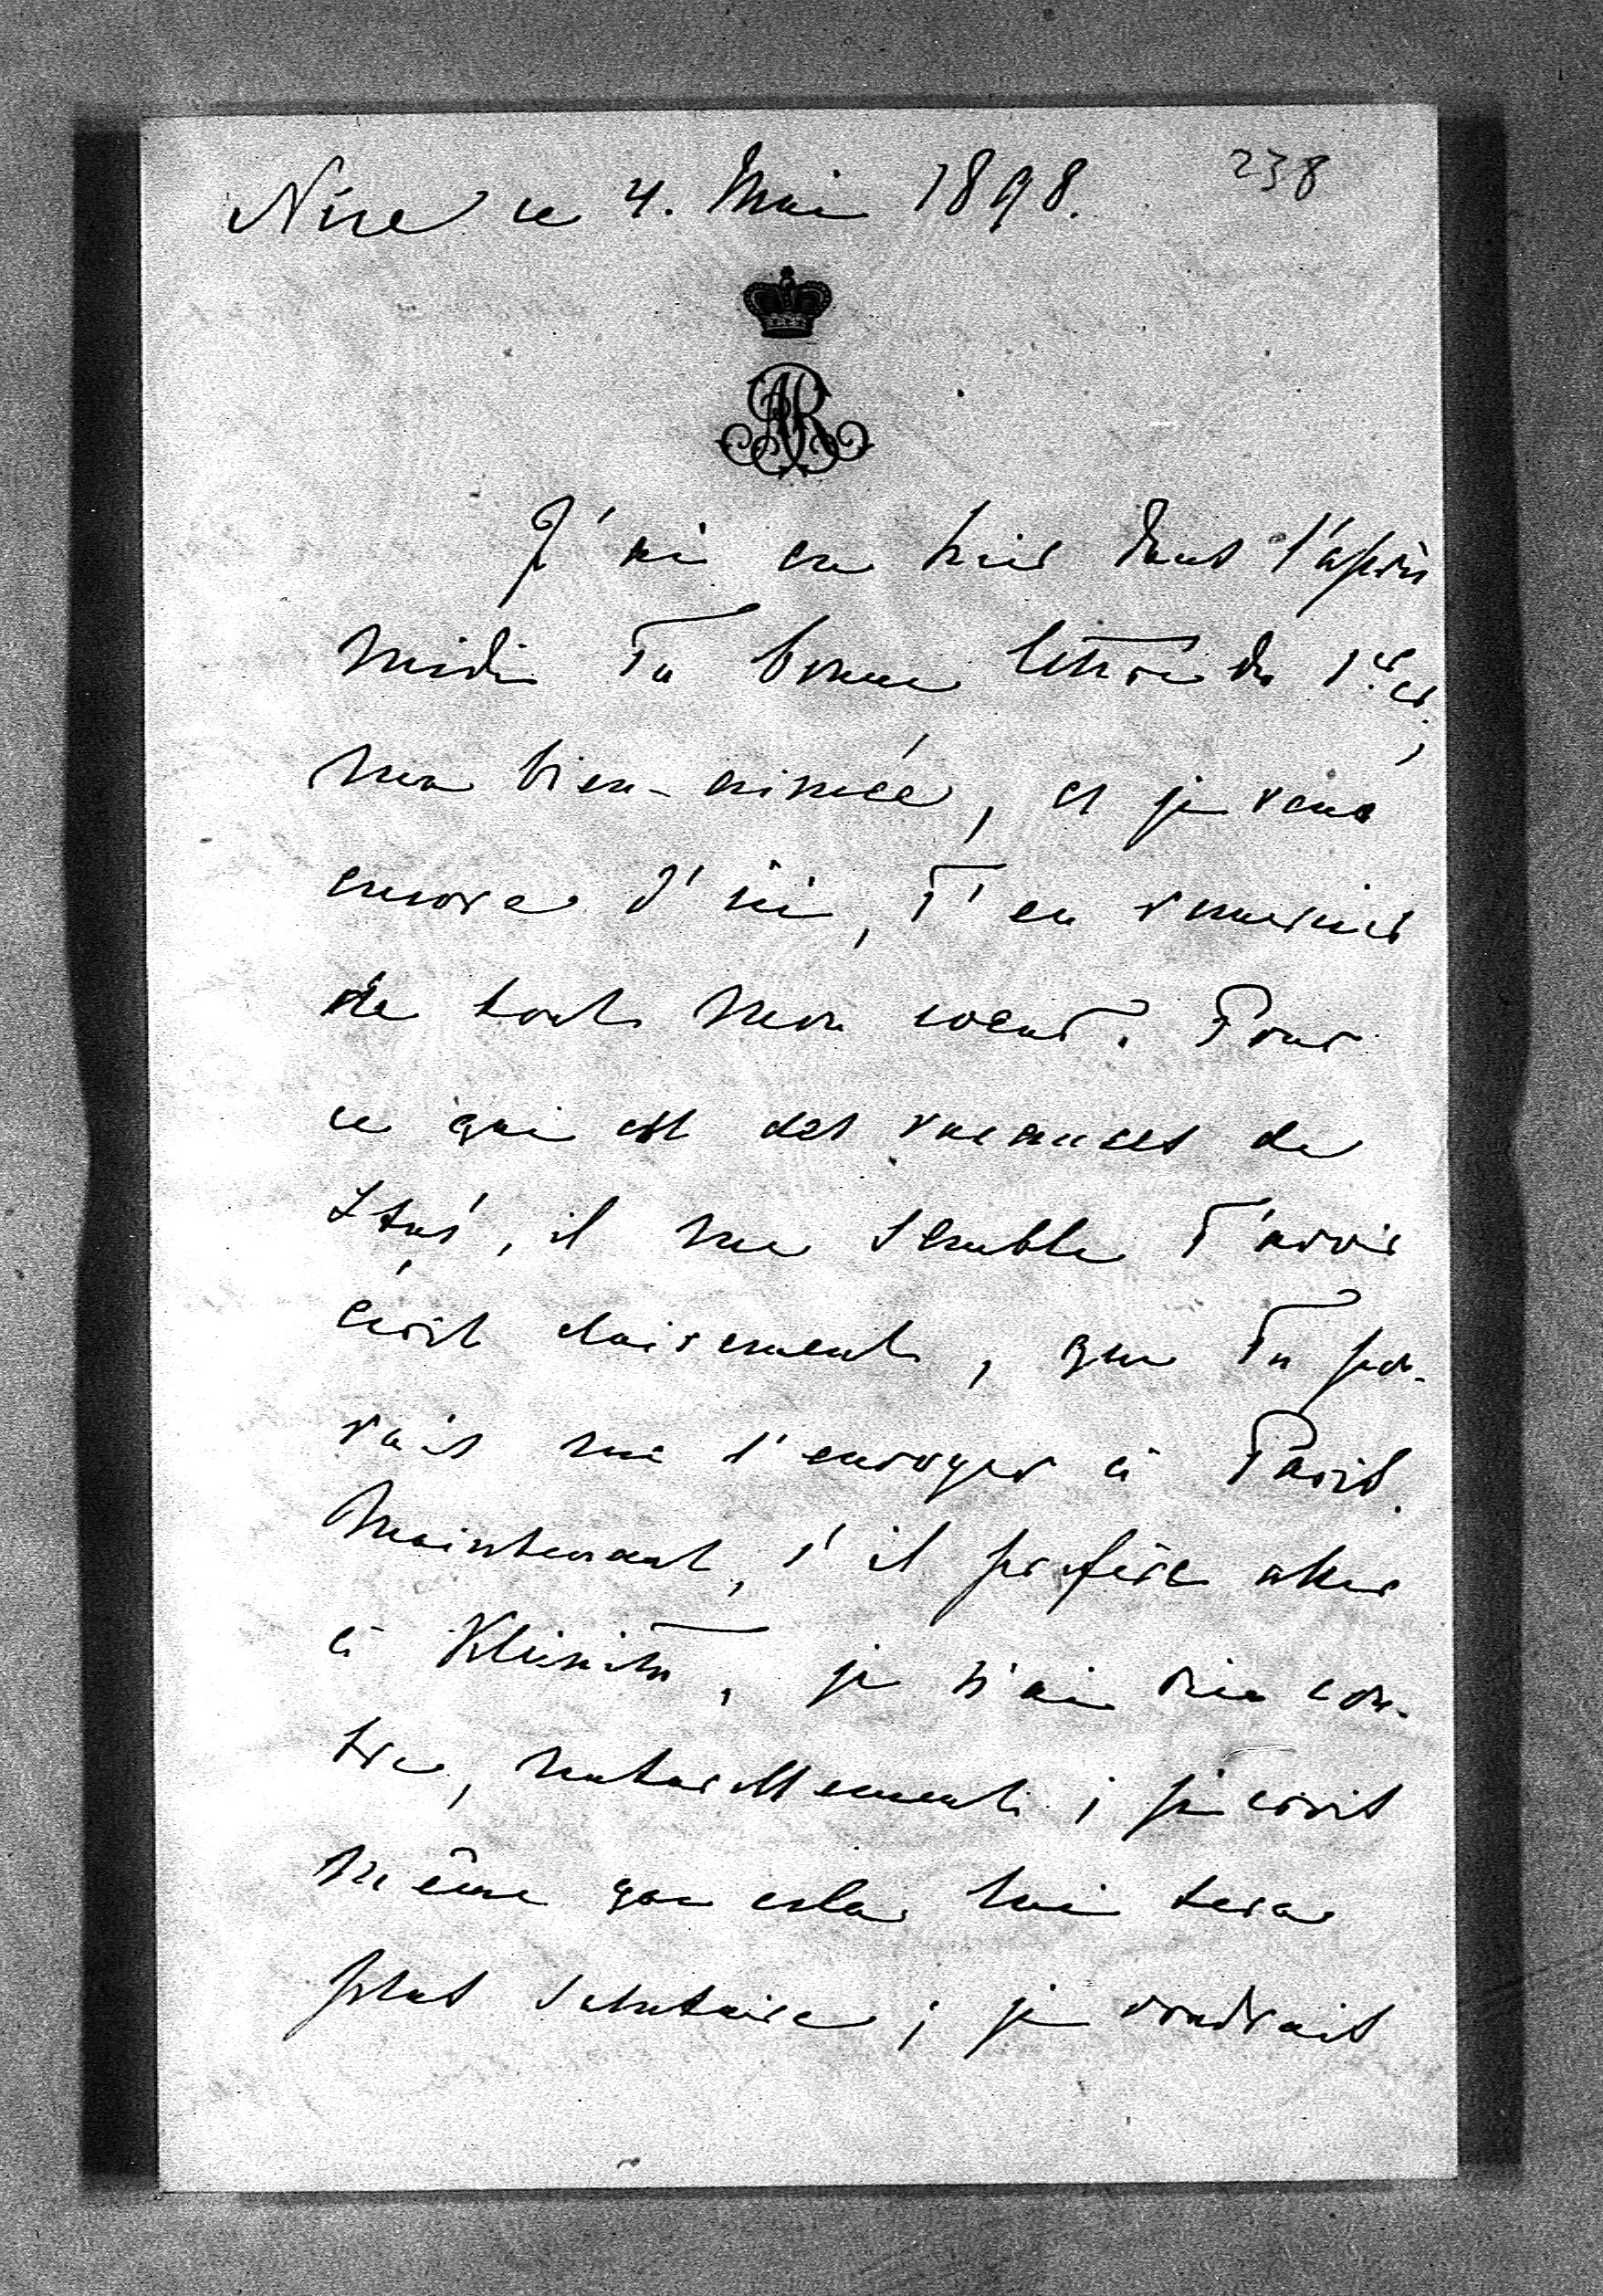 Nice ce 4. Mai 1898. 238
AR
J'ai eu hier dans l'après
midi Ta bonne lettre du 1er ct,
ma bien-aimée, et je veux
encore d'ici, T'en remercier
de tout mon coeur. Pour
ce qui est des vacances de
il me semble T'avoir
écrit clairement, que Tu pou-
vais me l'envoyer à Paris.
Maintenant, s'il préfère aller
à je n'ai rien con-
tre, naturellement; je crois
même que cela lui sera
plus salutaire; je voudrais